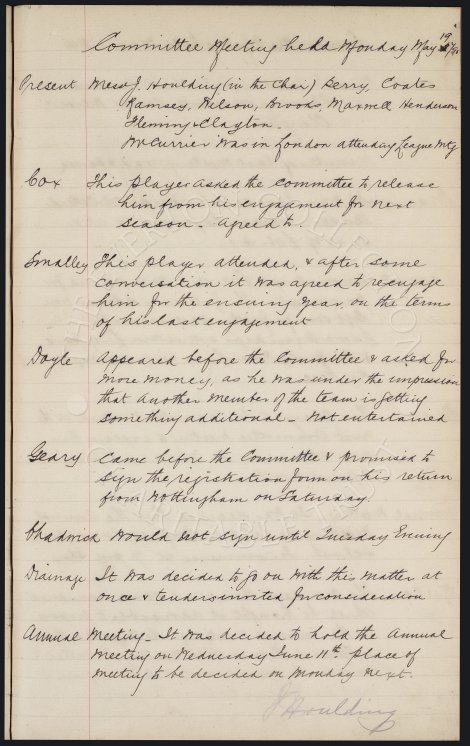 Committee Meeting held Monday May 19/90
Present Messrs J. Houlding (in the Chair) Berry, Coates
Ramsey, Wilson, Brooks, Maxwell Henderson
Fleming & Clayton.
Mr Currier was in London attending League Mtg
Cox This player asked the committee to release
him from his engagement for next
season - agreed to.
Smalley This player attended, & after some
conversation it was agreed to reengage
him for the ensuing year, on the terms
of his last engagement
Doyle Appeared before the Committee & asked for
more money, as he was under the impression
that another member of the team is getting
something additional - not entertained
Geary Came before the Committee & promised to
sign the registration form on his return
from Nottingham on Saturday
Chadwick would not sign until Tuesday Evening
Drainage It was decided to go on with this matter at
once & tenders invited for consideration
Annual Meeting - It was decided to hold the Annual
Meeting on Wednesday June 11th. place of
meeting to be decided on Monday next.
J Houlding